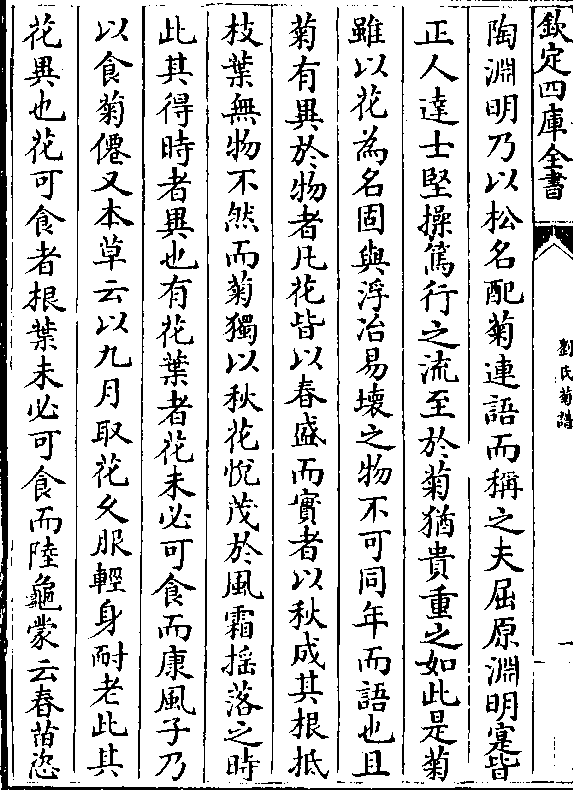 欽定四庫全書
劉氏菊譜
一
陶淵明乃以松名配菊連語而稱之夫屈原淵明寔皆
正人達士堅操篤行之流至於菊猶貴重之如此是菊
雖以花為名固與浮冶易壞之物不可同年而語也且
菊有異於物者凡花皆以春盛而實者以秋成其根柢
枝葉無物不然而菊獨以秋花悅茂於風霜揺落之時
此其得時者異也有花葉者花未必可食而康風子乃
以食菊僊又本草云以九月取花久服輕身耐老此其
花異也花可食者根葉未必可食而陸龜蒙云春苗恣